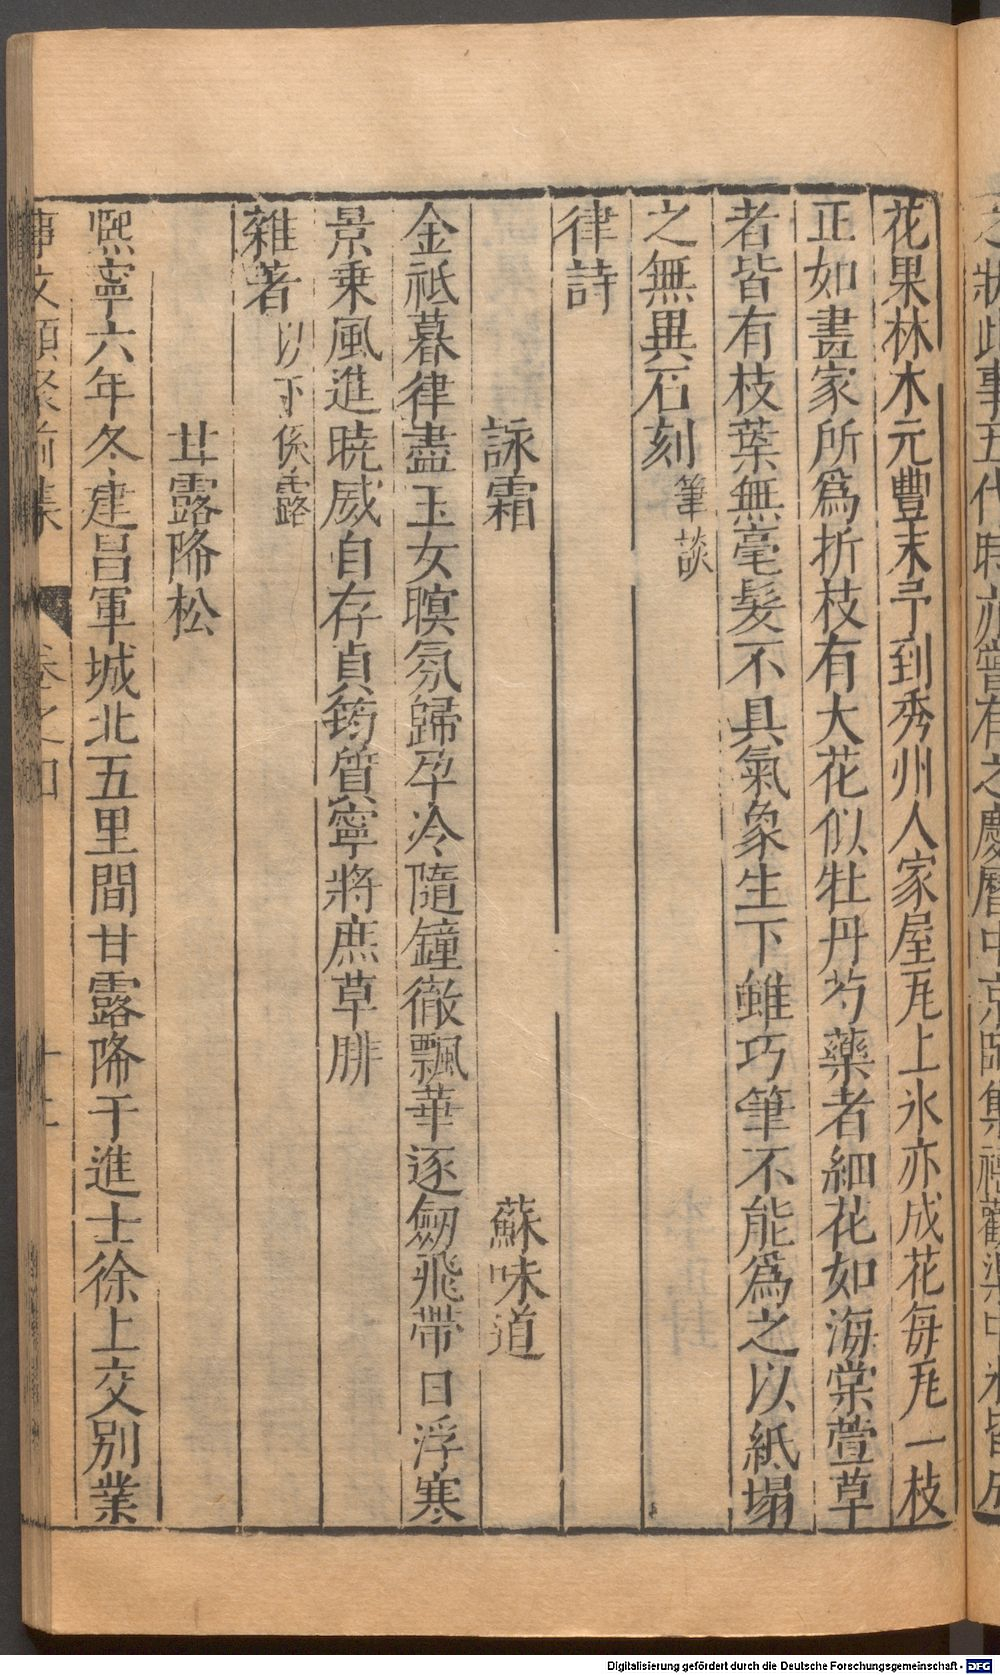 花果林木元豐末予到秀州人家屋瓦上氷亦成花每瓦一枝
正如畫家所爲折枝有大花似牡丹芍藥者細花如海棠萱草
者皆有枝葉無毫髮不具氣象生下雖巧筆不能爲之以紙塌
之無異石刻筆談
律詩
詠霜 蘇味道
金祗暮律盡玉女暝氛歸孕冷隨鐘徹飄華逐劒飛帶日浮寒
景乗風進曉威自存貞筠質寧將庶草腓
雜著以下係露
甘露降松
熈寧六年冬建昌軍城北五里間甘露降于進士徐上交別業
事文類聚前集 卷之四
Digitalisierung gefördert durch die Deutsche Forschungsgemeinschaft - DFG